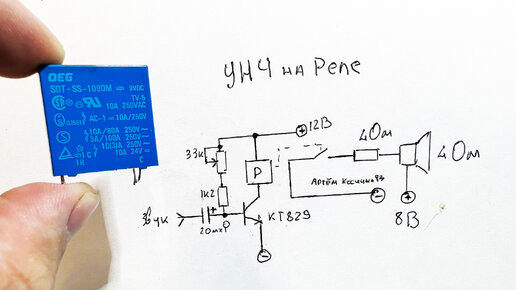 УНЧ на Реле
OEG
SDT-SS-109DM
9VDC
TV-5
10A 250VAC
AC-1=10A/250V
10A/80A 250V~
3A/100A 250V~
10(3)A 250V~
10A 24V
1H
C
12В
33к
P
4Ом
4Ом
1к2
Звук
20мк
КТ829
8В